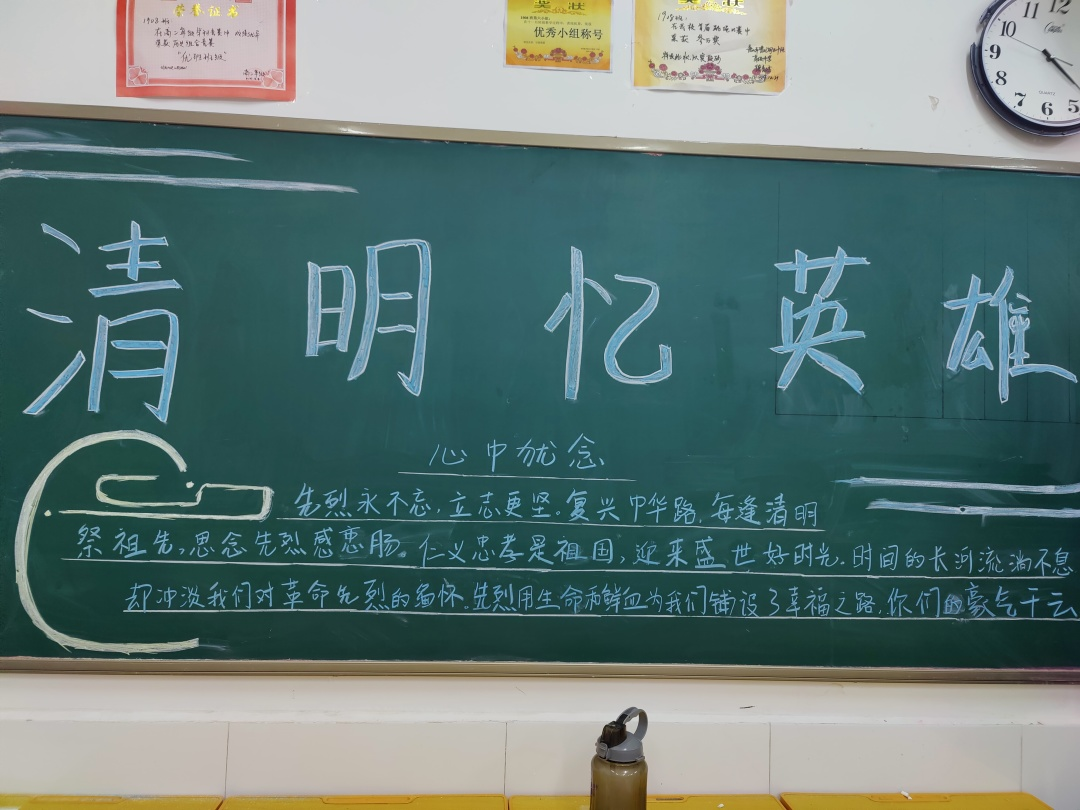 荣誉证书
1908班
"优胜班级"
奖状
优秀小组称号
奖状
1908班:
11 12 1
10
9
8
7 6 5
QUARTZ
清明忆英雄
心中犹念
先烈永不忘,立志更坚。复兴中华路,每逢清明
祭祖先,思念先烈感衷肠。仁义忠孝是祖国,迎来盛世好时光。时间的长河流淌不息
却冲淡我们对革命先烈的缅怀。先烈用生命和鲜血为我们铺设了幸福之路,你们的豪气干云